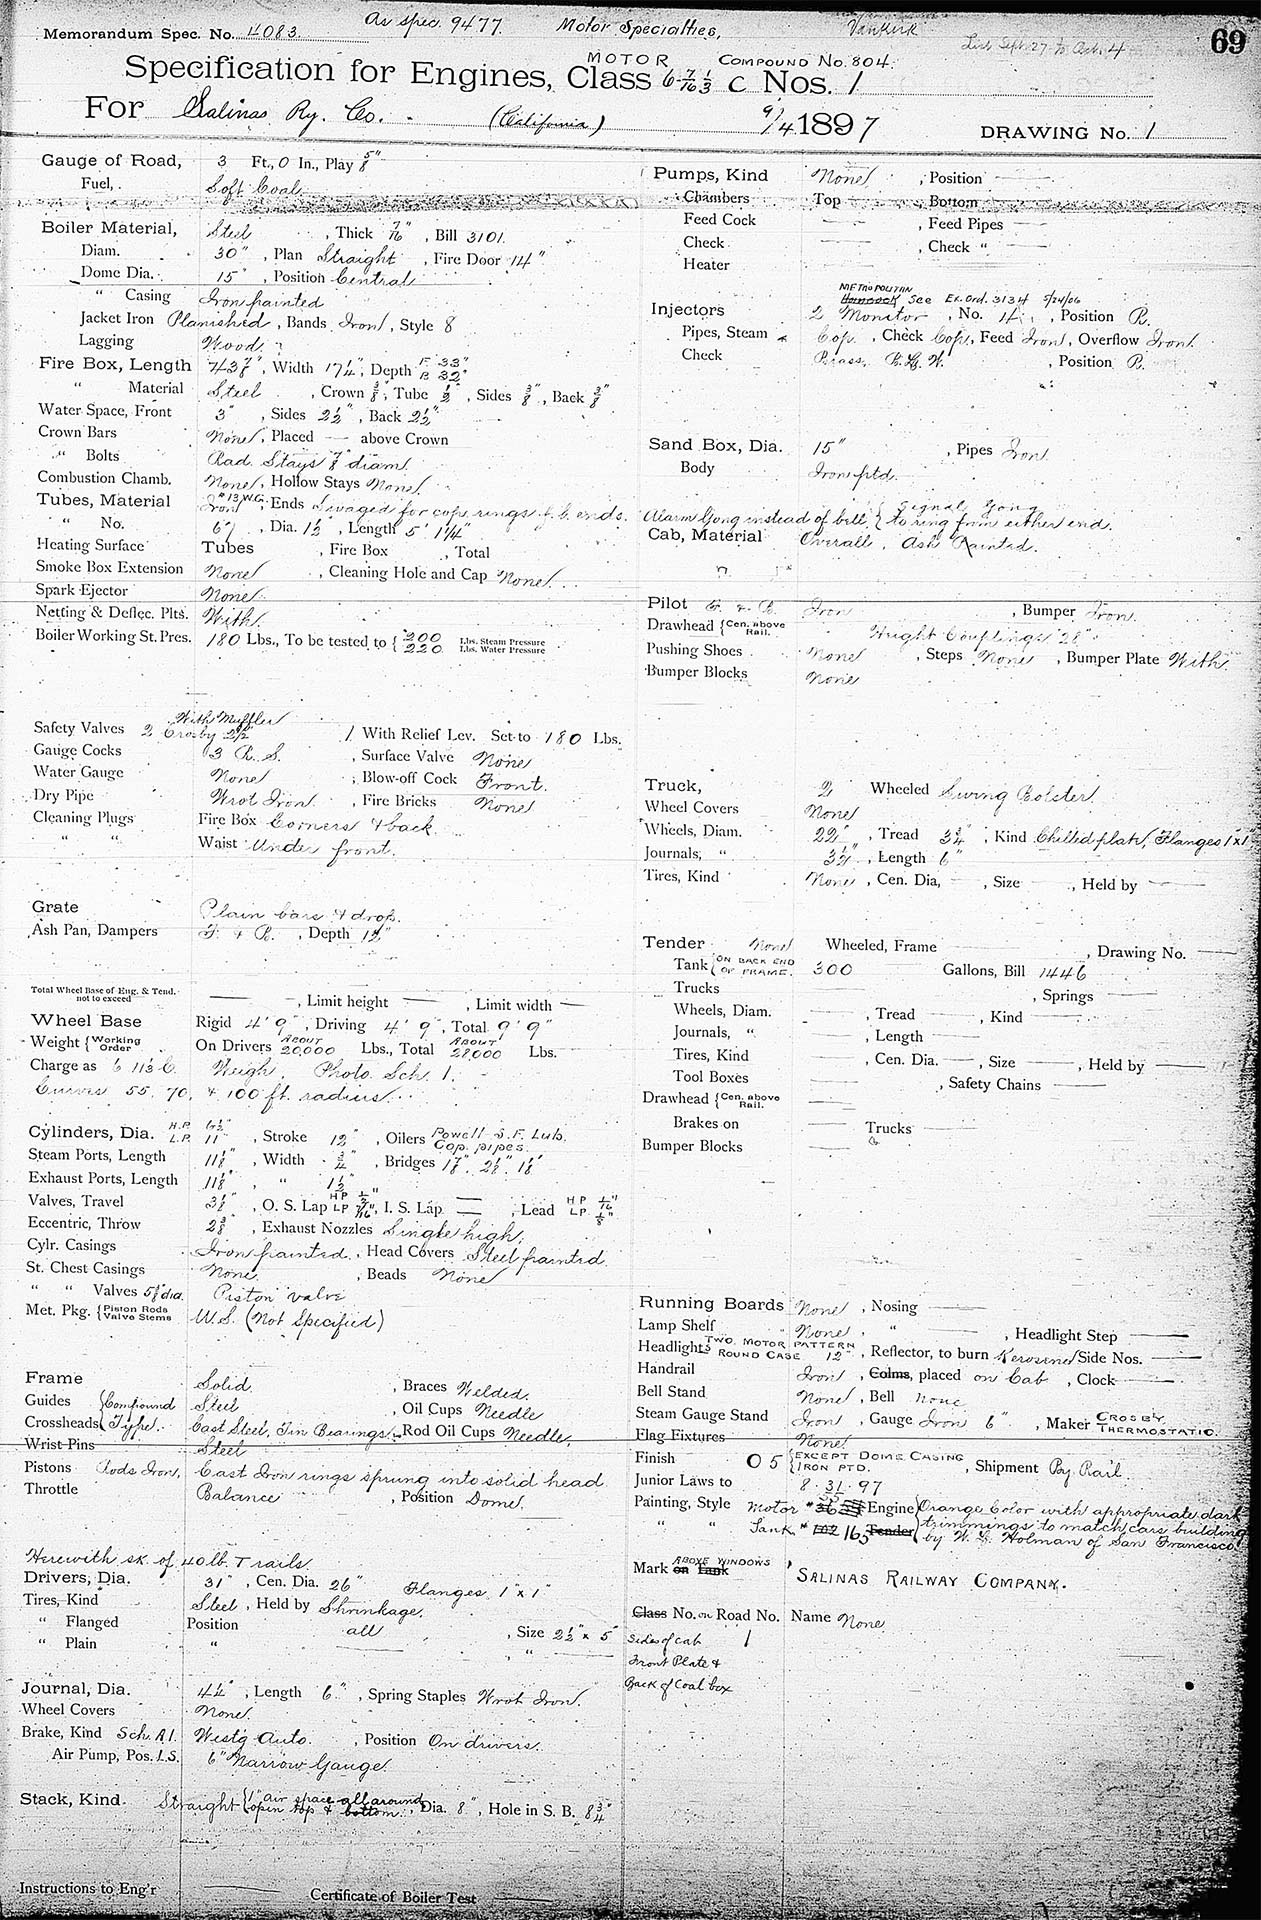 Memorandum Spec. No. 4083. As spec. 9477. Motor Specialties, Vankirk
69
Specification for Engines, Class MOTOR 6-7/16 1/3 C COMPOUND No. 804. Nos. 1
For Salinas Ry. Co. (California) 9/14 1897 DRAWING No. 1
Gauge of Road, 3 Ft., 0 In., Play 5/8"
Fuel, Soft Coal
Boiler Material, Steel, Thick 7/16", Bill 3101.
Diam. 30", Plan Straight, Fire Door 14"
Dome Dia. 15", Position Central
" Casing Iron painted
Jacket Iron Planished, Bands Iron, Style 8
Lagging Wood
Fire Box, Length 43 7/8", Width 17 1/4", Depth F 33" B 32"
" Material Steel, Crown 3/8", Tube 1/2", Sides 3/8", Back 3/8"
Water Space, Front 3", Sides 2 1/2", Back 2 1/2"
Crown Bars None, Placed — above Crown
" Bolts Rad. Stays 7/8" diam.
Combustion Chamb. None, Hollow Stays None.
Tubes, Material Iron #13 W.G., Ends Swaged for cop. rings f. b. ends.
" No. 67, Dia. 1 1/2", Length 5' 1 1/4"
Heating Surface Tubes , Fire Box , Total
Smoke Box Extension None, Cleaning Hole and Cap None.
Spark Ejector None.
Netting & Deflec. Plts. With.
Boiler Working St. Pres. 180 Lbs., To be tested to { 200 Lbs. Steam Pressure 220 Lbs. Water Pressure
With Muffler
Safety Valves 2 Crosby 2 1/2" 1 With Relief Lev. Set to 180 Lbs.
Gauge Cocks 3 R. S., Surface Valve None
Water Gauge None, Blow-off Cock Front.
Dry Pipe Wrot Iron, Fire Bricks None
Cleaning Plugs Fire Box Corners & back.
" " Waist Under front.
Grate Plain bars & drop.
Ash Pan, Dampers F. & B., Depth 12"
Total Wheel Base of Eng. & Tend. not to exceed —, Limit height —, Limit width —
Wheel Base Rigid 4' 9", Driving 4' 9", Total 9' 9"
Weight { Working Order On Drivers ABOUT 20,000 Lbs., Total ABOUT 28,000 Lbs.
Charge as 6 11 1/3 C. Weigh. Photo. Sch. 1.
Curves 55, 70, & 100 ft. radius.
Cylinders, Dia. H.P. 6 1/2" L.P. 11", Stroke 12", Oilers Powell S.F. Lub. Cop. pipes.
Steam Ports, Length 11 1/8", Width 3/4", Bridges 1 7/8", 2 1/2", 1 1/8"
Exhaust Ports, Length 11 1/8", " 1 1/2"
Valves, Travel 3 1/2", O. S. Lap HP 1/2" LP 7/16", I. S. Lap —, Lead H.P. 1/16" L.P. 1/8"
Eccentric, Throw 2 3/8", Exhaust Nozzles Single high.
Cylr. Casings Iron painted, Head Covers Steel painted
St. Chest Casings None, Beads None
" " Valves 5 1/8" dia. Piston valve
Met. Pkg. { Piston Rods Valve Stems W.S. (Not Specified)
Frame Solid, Braces Welded.
Guides { Compound Steel, Oil Cups Needle
Crossheads { Type. Cast Steel, Tin Bearings, Rod Oil Cups Needle.
Wrist Pins Steel
Pistons Rods Iron, Cast Iron rings sprung into solid head
Throttle Balance, Position Dome.
Herewith sk. of 40 lb. T rails
Drivers, Dia. 31", Cen. Dia. 26" Flanges 1" x 1"
Tires, Kind Steel, Held by Shrinkage.
" Flanged Position all, Size 2 1/2" x 5"
" Plain " — , " —
Journal, Dia. 4 1/4", Length 6", Spring Staples Wrot Iron.
Wheel Covers None.
Brake, Kind Sch. A1. Westg. Auto., Position On drivers.
Air Pump, Pos. L.S. 6" Narrow Gauge.
Stack, Kind Straight { 1" air space all around open top & bottom., Dia. 8", Hole in S. B. 8 3/4"
Instructions to Eng'r — Certificate of Boiler Test —
Pumps, Kind None, Position —
Chambers Top —, Bottom —
Feed Cock —, Feed Pipes —
Check —, Check " —
Heater —
METROPOLITAN
Hancock See Ex. Ord. 3134 5/24/06
Injectors 2 Monitor, No. 4, Position R.
Pipes, Steam Cop., Check Cop., Feed Iron, Overflow Iron.
Check Brass, , Position R.
Sand Box, Dia. 15", Pipes Iron.
Body Iron ptd.
Alarm Gong instead of bell, { Signal Gong to ring from either end.
Cab, Material Overall, Ash Painted.
Pilot F. & B. Iron, Bumper Iron.
Drawhead { Cen. above Rail. Height Couplings 28"
Pushing Shoes None, Steps None, Bumper Plate With.
Bumper Blocks None
Truck, 2 Wheeled Swing Bolster.
Wheel Covers None
Wheels, Diam. 22", Tread 3 3/4", Kind Chilled plate, Flanges 1" x 1"
Journals, " 3 1/4", Length 6"
Tires, Kind None, Cen. Dia, —, Size —, Held by —
Tender None Wheeled, Frame —, Drawing No. —
Tank { ON BACK END OF FRAME. 300 Gallons, Bill 1446
Trucks —, Springs —
Wheels, Diam. —, Tread —, Kind —
Journals, " —, Length —
Tires, Kind —, Cen. Dia. —, Size —, Held by —
Tool Boxes —, Safety Chains —
Drawhead { Cen. above Rail. —
Brakes on — Trucks —
Bumper Blocks —
Running Boards None, Nosing —
Lamp Shelf None, " —, Headlight Step —
Headlights TWO MOTOR PATTERN ROUND CASE 12", Reflector, to burn Kerosene Side Nos. —
Handrail Iron, Colms, placed on Cab, Clock —
Bell Stand None, Bell none
Steam Gauge Stand Iron, Gauge Iron 6", Maker CROSBY THERMOSTATIC.
Flag Fixtures None.
Finish O 5 { EXCEPT DOME CASING IRON PTD., Shipment By Rail.
Junior Laws to 8.31.97
Painting, Style Motor # Engine { Orange Color with appropriate dark
" " Tank # 102 165 Tender trimmings to match cars building
by W. L. Holman of San Francisco.
Mark ABOVE WINDOWS on Tank "SALINAS RAILWAY COMPANY.
Class No. on Road No. Name None
Sides of cab 1
Front Plate &
Back of Coal box